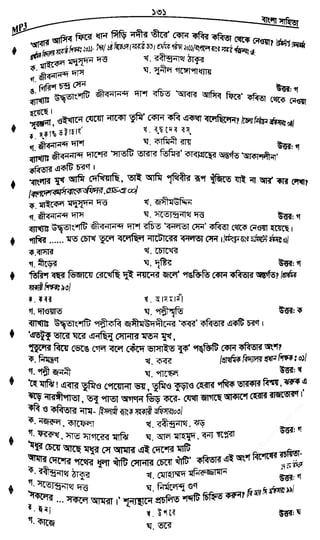 ১৩১
বাংলা সাহিত্য
MP3
'আবার আসিব ফিরে ধান সিঁড়ি নদীর তীরে' কোন কবির কবিতা থেকে নেওয়া?
ক. মাইকেল মধুসূদন দত্ত খ. রবীন্দ্রনাথ ঠাকুর
গ. জীবনানন্দ দাশ ঘ. সুনীল গঙ্গোপাধ্যায়
ঙ. গিরিশ চন্দ্র সেন উত্তর: গ
ব্যাখ্যা উদ্ধৃতাংশটি জীবনানন্দ দাশ রচিত 'আবার আসিব ফিরে' কবিতা থেকে নেওয়া
হয়েছে।
'সুরঞ্জনা, ওইখানে যেয়ো নাকো তুমি' কোন কবি একথা বলেছিলেন?
গ. জীবনানন্দ দাশ ঘ. কামিনী রায় উত্তর: গ
ব্যাখ্যা জীবনানন্দ দাশের 'সাতটি তারার তিমির' কাব্যগ্রন্থের অন্তর্গত 'আকাশলীনা'
কবিতার একটি চরণ।
'বাংলার মুখ আমি দেখিয়াছি, তাই আমি পৃথিবীর রূপ খুঁজিতে যাই না আর' কার লেখা?
ক. মাইকেল মধুসূদন দত্ত খ. জসীমউদ্দিন
গ. জীবনানন্দ দাশ ঘ. সত্যেন্দ্রনাথ দত্ত উত্তর: গ
ব্যাখ্যা উদ্ধৃতাংশটি জীবনানন্দ দাশ রচিত 'বনলতা সেন' কবিতা থেকে নেওয়া হয়েছে।
পাখির ...... মত চোখ তুলে বলেছিল নাটোরের বনলতা সেন।
ক.বাসার খ. চোখের
গ. নীড়ের ঘ. দৃষ্টির উত্তর: গ
'তিরিশ বছর ভিজায়ে রেখেছি দুই নয়নের জলে' পঙক্তিটি কোন কবিতার অন্তর্গত?
ক. কবর
গ. দাওয়াত ঘ. পল্লীস্মৃতি উত্তর: ক
ব্যাখ্যা উদ্ধৃতাংশটি পল্লীকবি জসীমউদদীনের 'কবর' কবিতার একটি চরণ।
'এতটুকু তারে ঘরে এনেছিনু সোনার মতন মুখ,
পুতুলের বিয়ে ভেঙে গেল বলে কেঁদে ভাসাইত বুক' পঙক্তিটি কোন কবিতার অংশ?
ক. নিমন্ত্রণ খ. কবর
গ. পল্লী জননী ঘ. পাছেল উত্তর: খ
'হে মাঝি! এবার তুমিও পেয়োনা ভয়, তুমিও কুড়াও হেরার পথিক তারকার বিস্ময়, ঝরুক এ
ঝড়ে নারঙ্গীপাতা, তবু পাতা অগণন ভিড় করে- যেথা জাগছে আকাশে হেরার রাজতোরণ।'
কবি ও কবিতার নাম-
ক. নজরুল, কাফেলা খ. রবীন্দ্রনাথ, ঝড়
গ. ফররুখ, সাত সাগরের মাঝি ঘ. আল মাহমুদ, বন্য স্বপ্নেরা উত্তর: গ
'মধুর চেয়ে আছে মধুর সে আমার এই দেশের মাটি
আমার দেশের পথের ধূলা খাঁটি সোনার চেয়ে খাঁটি' কবিতার এই অংশ বিশেষের রচয়িতা-
ক. রবীন্দ্রনাথ ঠাকুর খ. মোহাম্মদ মনিরুজ্জামান
গ. সত্যেন্দ্রনাথ দত্ত ঘ. নির্মলেন্দু গুণ উত্তর: গ
'সকলের ... সকলে আমরা।' শূন্যস্থানে প্রচলিত শব্দটি চিহ্নিত করুন?
গ. কাজে ঘ. তরে উত্তর: ঘ